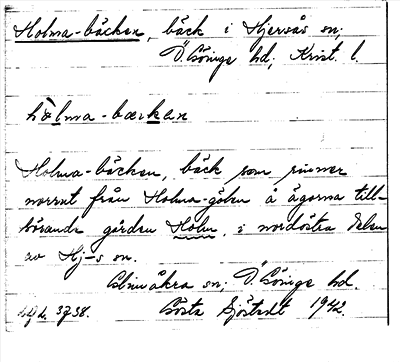 Holma-bäcken, bäck i Hjersås sn;
Ö. Göinge hd; Krist. l.
hòlma-bækən
Holma-bäcken, bäck som rinner
norrut från Holma-gölen å ägorna till-
hörande gården Holm, i nordöstra delen
av Hj-s sn.
Glimåkra sn; Ö. Göinge hd.
Gösta Sjöstedt 1942.